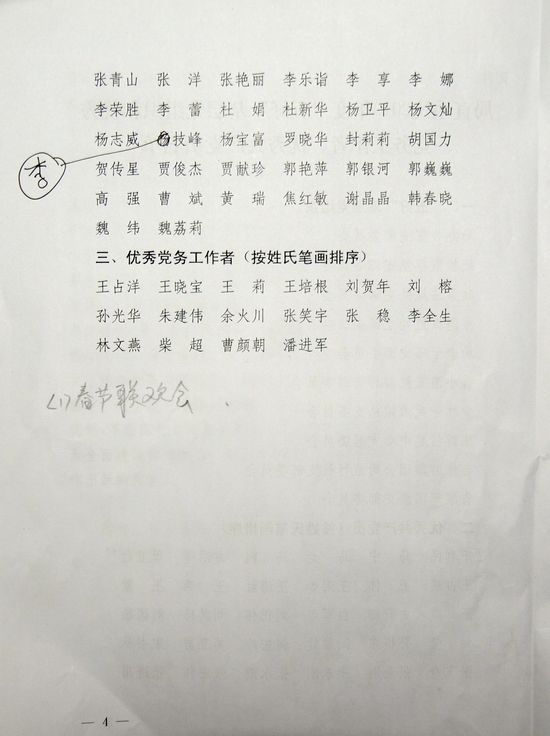 张青山 张 洋 张艳丽 李乐诣 李 享 李 娜
李荣胜 李 蕾 杜 娟 杜新华 杨卫平 杨文灿
杨志威 杨技峰 杨宝富 罗晓华 封莉莉 胡国力
李
贺传星 贾俊杰 贾献珍 郭艳萍 郭银河 郭巍巍
高 强 曹 斌 黄 瑞 焦红敏 谢晶晶 韩春晓
魏 纬 魏荔莉
三、优秀党务工作者（按姓氏笔画排序）
王占洋 王晓宝 王 莉 王培根 刘贺年 刘 榕
孙光华 朱建伟 余火川 张笑宇 张 稳 李全生
林文燕 柴 超 曹颜朝 潘进军
(1)春节联欢会
— 4 —